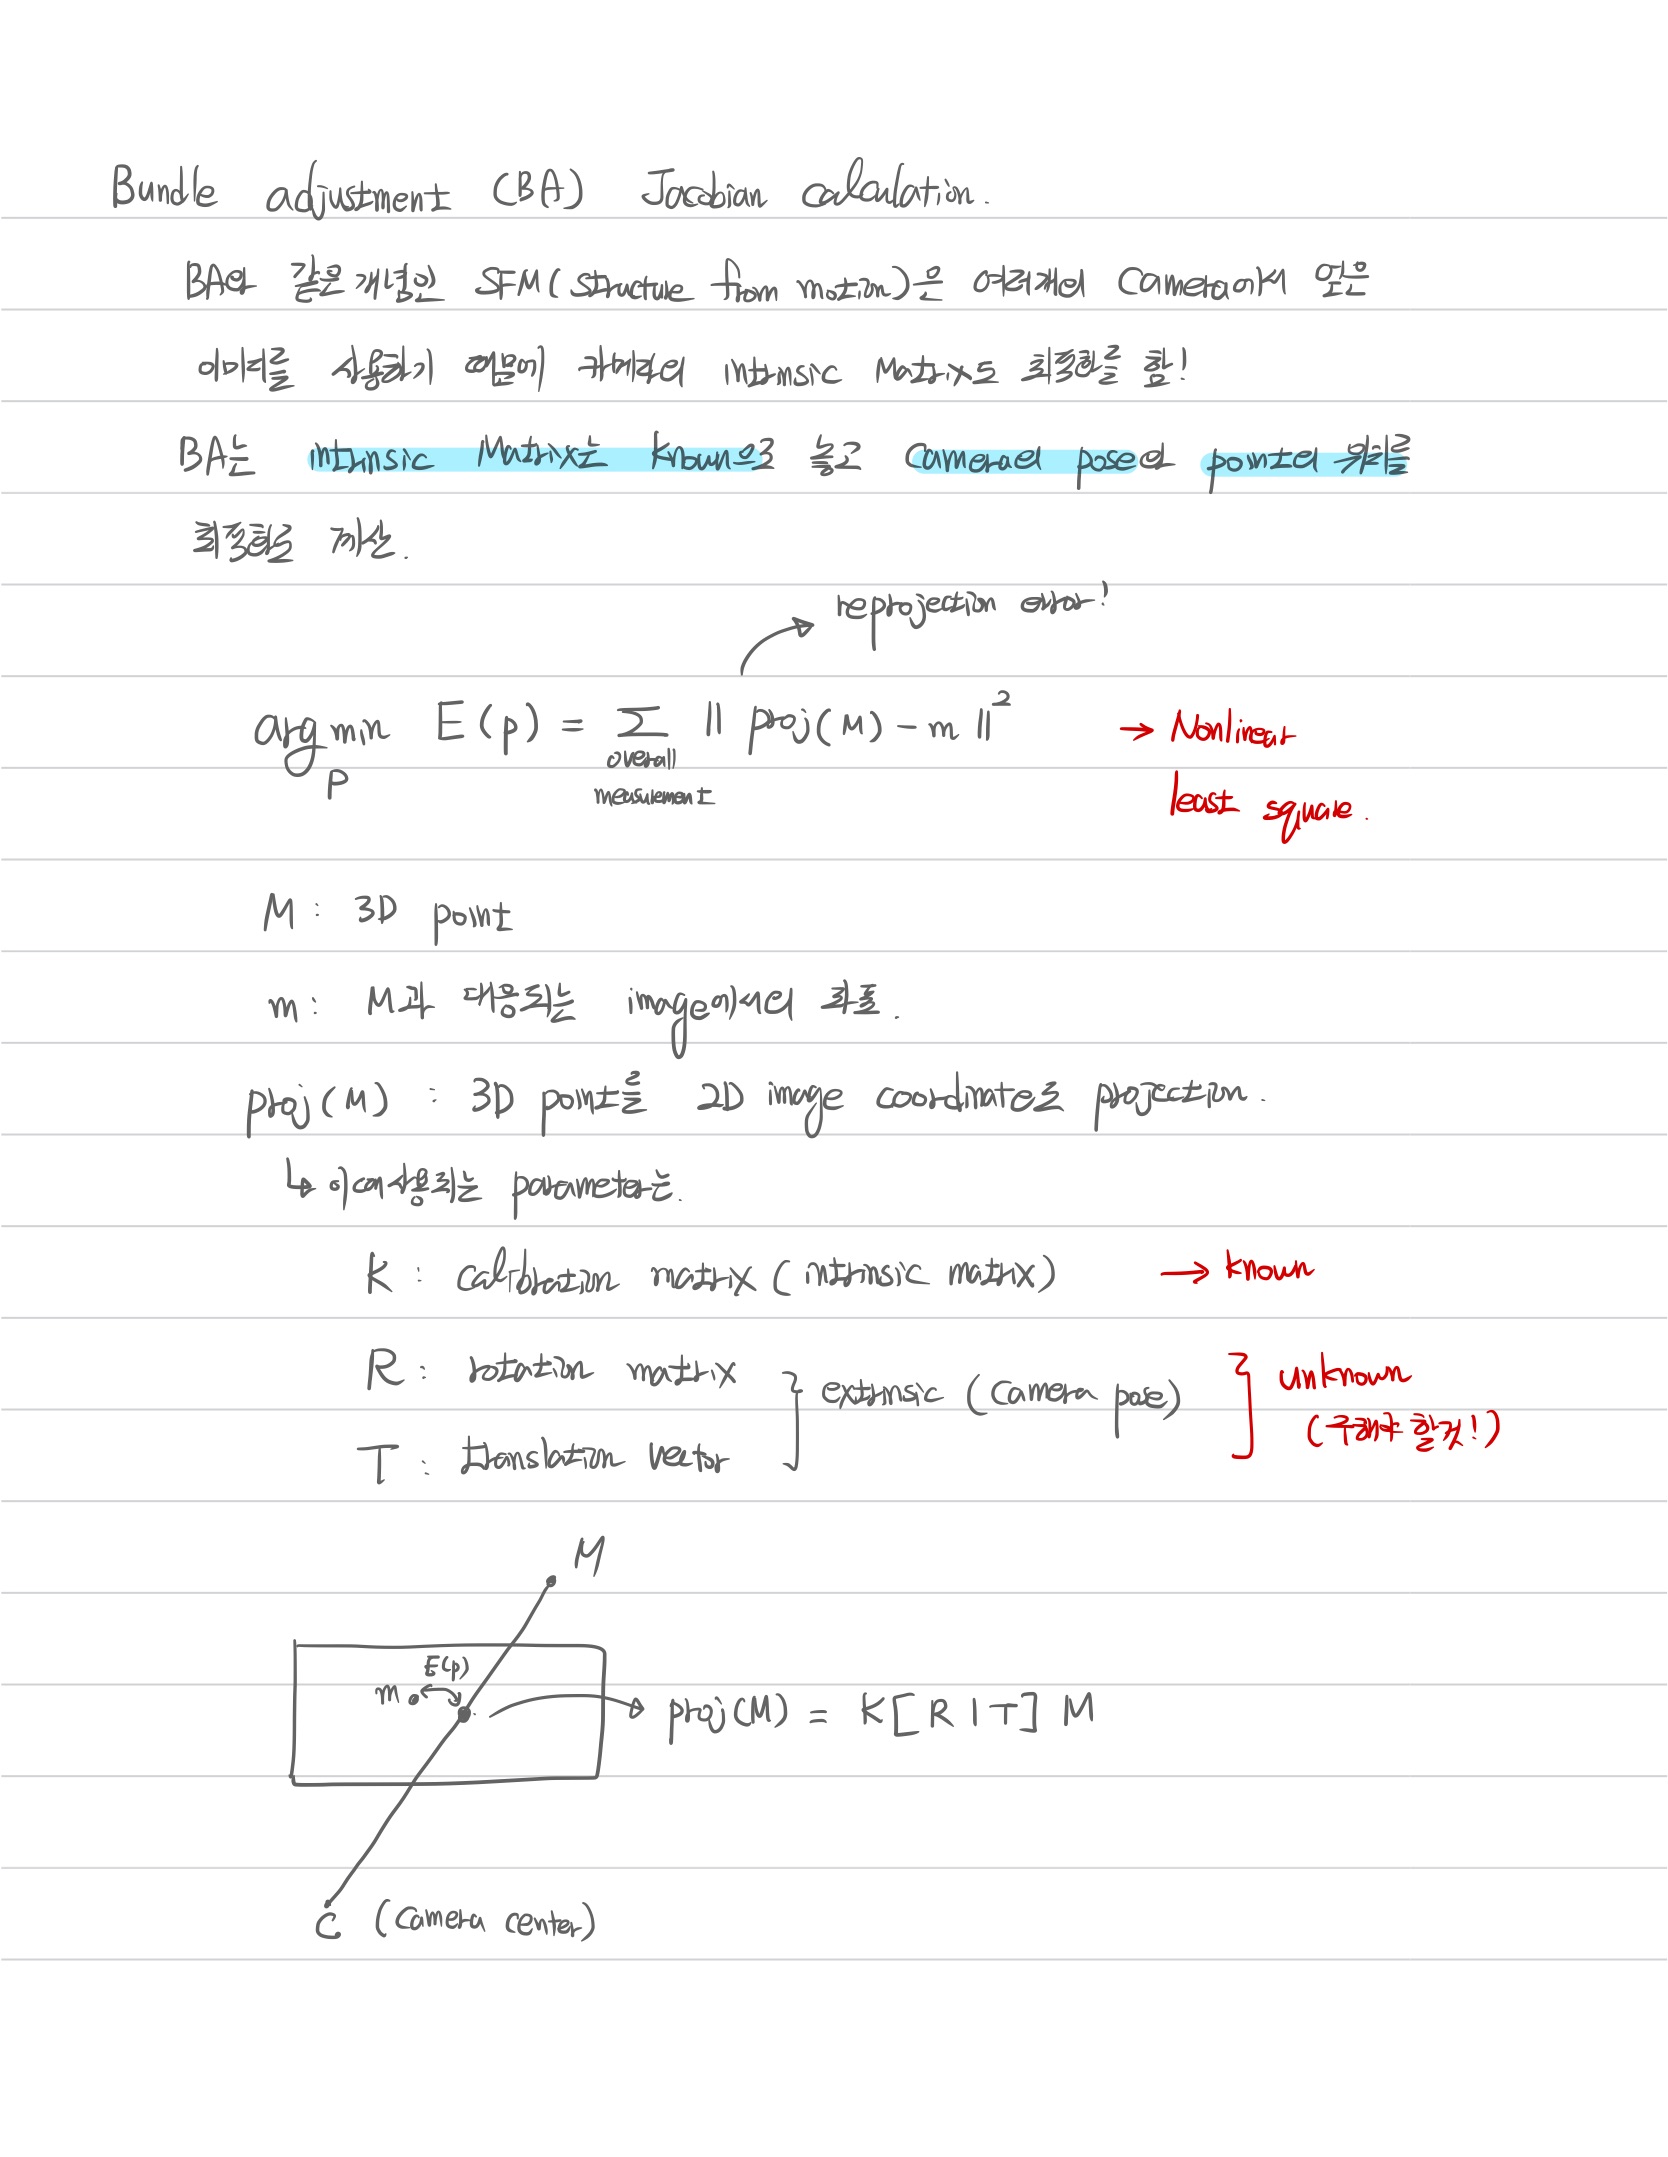 Bundle adjustment (BA) Jacobian calculation.
BA와 같은 개념인 SFM(structure from motion)은 여러개의 Camera에서 얻은
이미지를 사용하기 때문에 카메라의 intrinsic Matrix도 최적화를 함!
BA는 intrinsic Matrix는 known으로 놓고 Camera의 pose와 point의 위치를
최적화로 계산.
reprojection error!
arg min E(p) = Σ || proj(M) - m ||²
p
overall
measurement
→ Nonlinear
least square.
M : 3D point
m : M과 대응되는 image에서의 좌표.
proj(M) : 3D point를 2D image coordinate로 projection.
↳ 이때 사용되는 parameter는.
K : calibration matrix (intrinsic matrix) → known
R : rotation matrix
T : translation vector
} extrinsic (camera pose)
] unknown
(구해야 할것!)
M
E(p)
m
proj(M) = K[R|T] M
C (camera center)